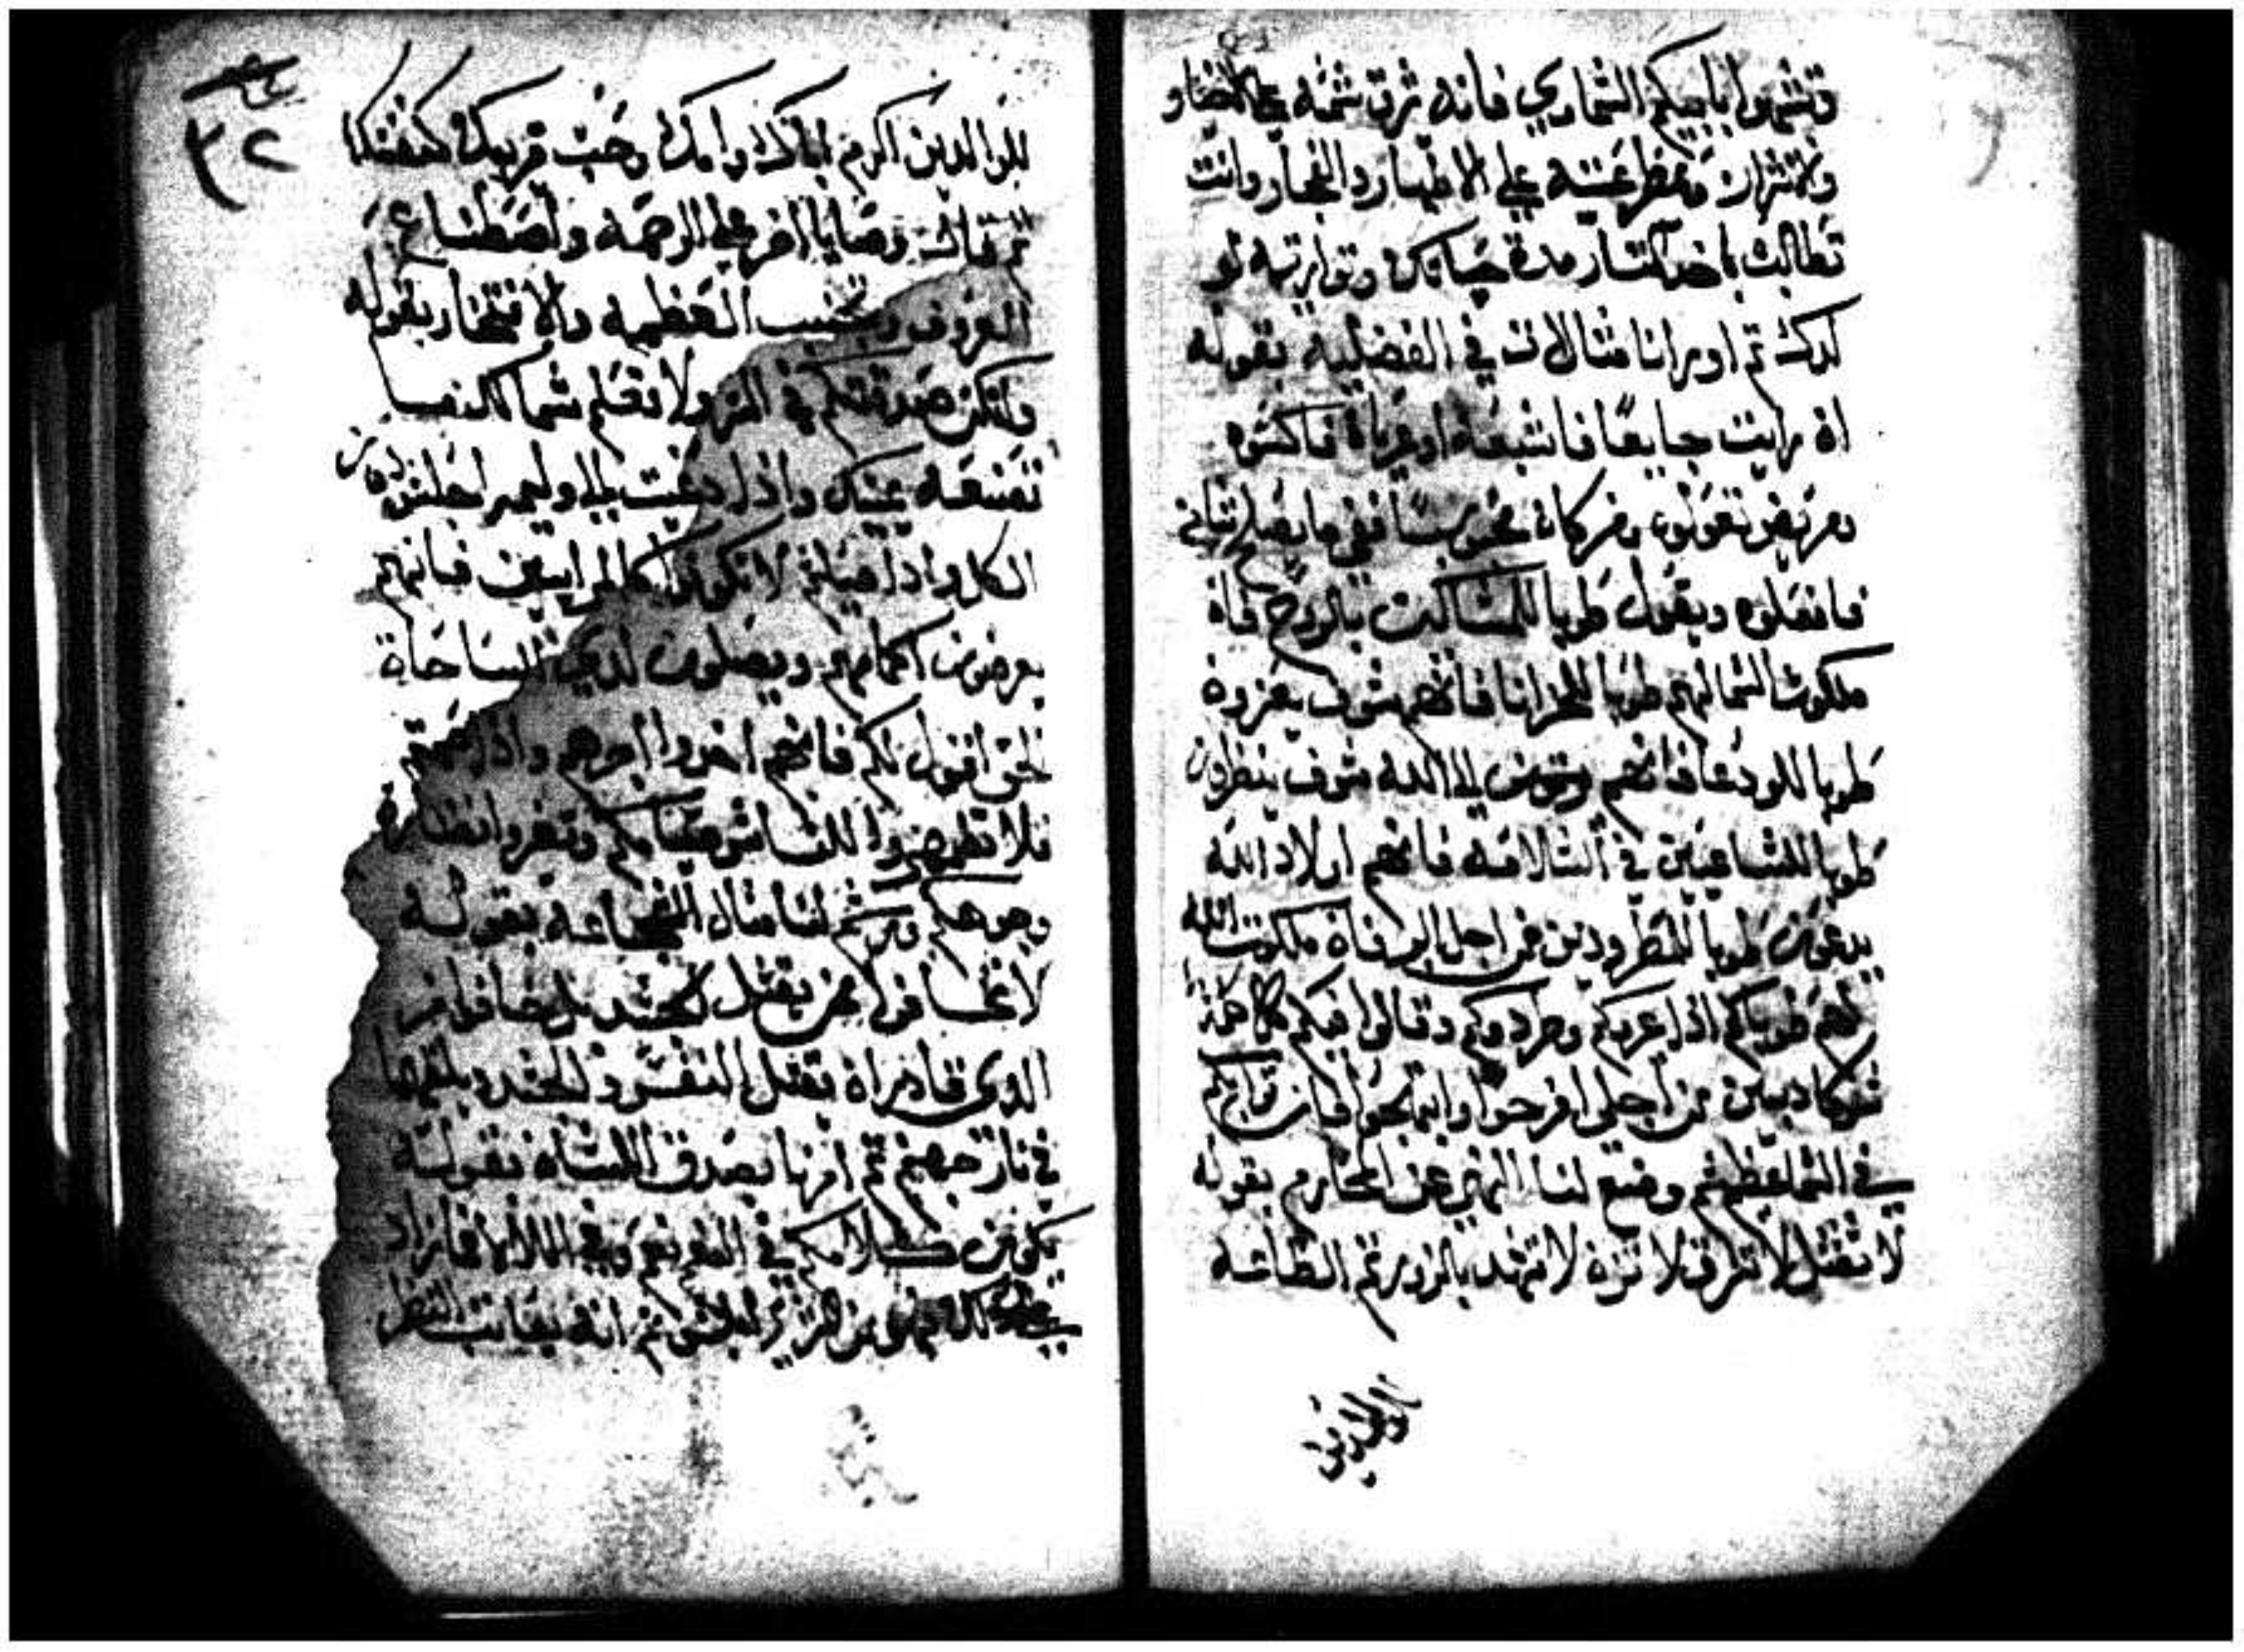 وتشبهوا بابيكم السماوي فانه شرق شمسه على الاخيار
والاشرار وممطر غيثه على الاطهار والفجار وانت
تطالب باخد التار مدة حياتك وتوارثه لو
لدك ثم اورانا مثالات في الفضليه بقوله
اذ رايت جايعًا فاشبعه او عريان فاكسوه
ومريض تعولوه ومن كان محبوسًا ففي ما يصلح شانه
فافعلوه ويقول طوبا للمساكين بالروح فان
ملكوت السما لهم طوبا للحزانا فانهم سوف يعزون
طوبا للودعا فانهم الله سوف ينظرون
طوبا للساعيين في السلامه فانهم اولاد الله
يدعون طوبا للمطرودين من اجل البر فان ملكوت الله
لهم طوباكم اذا عيروكم وطردوكم وقالوا فيكم كل كلمة
سو كادبين من اجلي افرحوا وابتهجوا فان ثوابكم
في السما عظيم وضع لنا النهي عن المحارم بقوله
لا تقتل لا تسرق لا تزن لا تشهد بالزور ثم الطاعه
للوالدين
٣٢
للوالدين اكرم اباك وامك وحب قريبك كنفسك
ثم قال وصايا اخر على الرحمه واصطناع
المعروف وتجنب العظمه والافتخار بقوله
ولتكن صدقتكم في السر ولا تعلم شمالك بما
تصنعه يمينك واذا دعيت الى وليمه اجلس دون
الكل واذا صليتم لا تكونوا كالمرايين فانهم
يعرضون اكمامهم ويصلون لدي الساحات
الحق اقول لكم فانهم اخدوا اجرهم واذا صمتم
فلا تظهروا للناس صيامكم وتغيروا نضارة
وجوهكم ثم لنا مثال الشجاعه بقوله
لا تخافوا ممن يقتل الجسد بل خافوا من
الدي قادر ان يقتل النفس والجسد ويلقيها
في نار جهنم ثم امرنا بصدق اللسان بقوله
يكون كلامكم في النعم نعم وفي اللا لا فما زاد
على دلك فهو من الشرير ابليس ثم انه يعاتب النظر